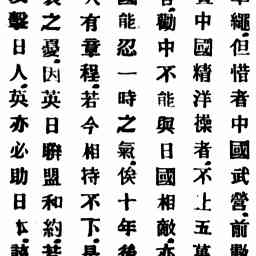 繩、但惜者中國武營、前數
中國精洋操者、不上五萬
勸中不能與日國相敵、亦
國能忍一時之氣、俟十年後
有章程、若今相待不下、是
之憂、因英日聯盟和約、若
擊日人、英亦必助日本、該